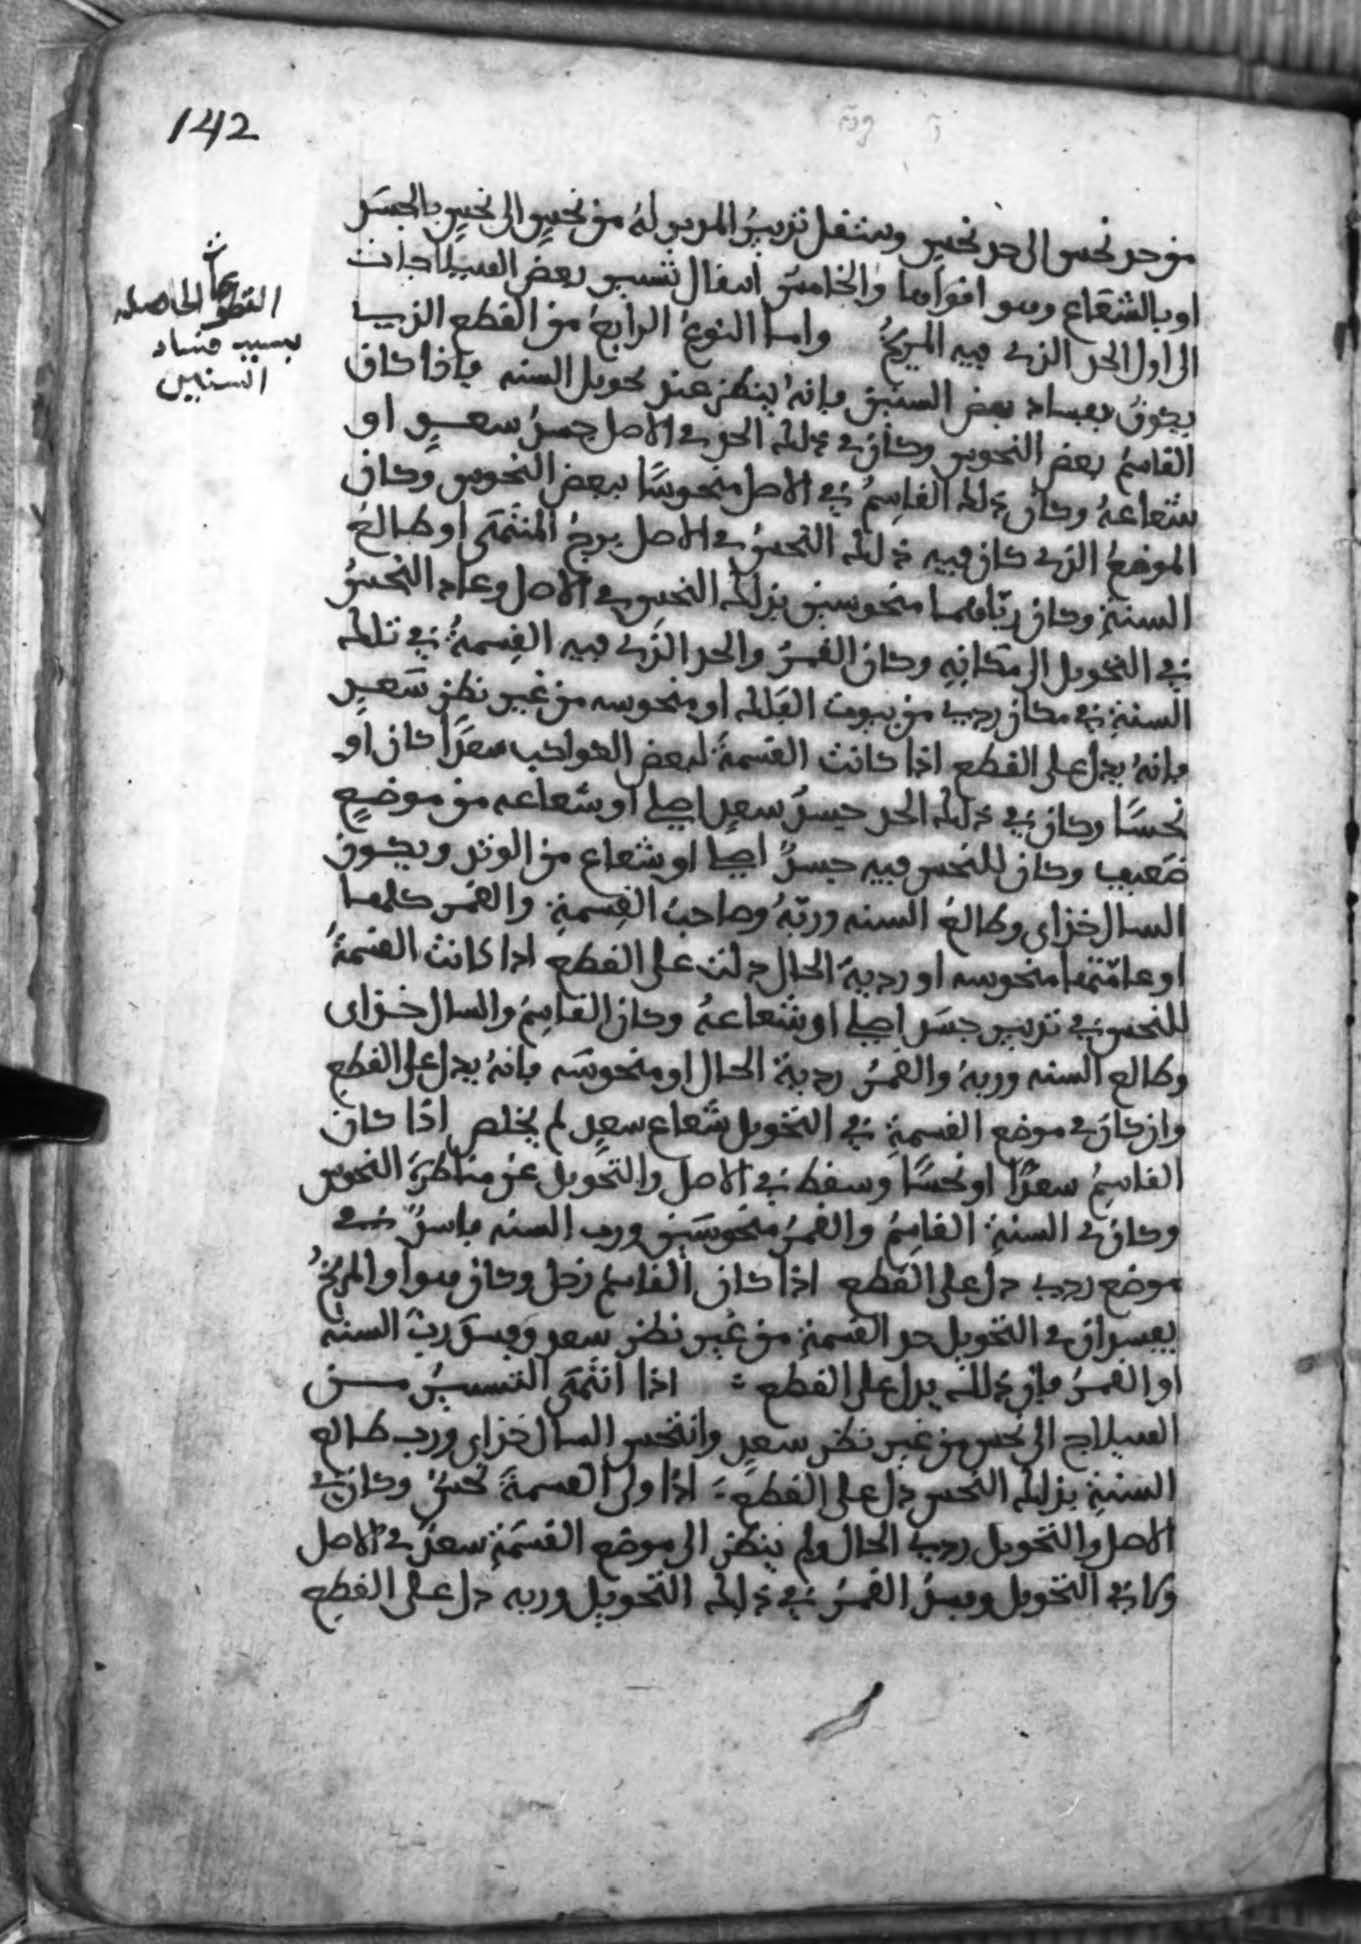 142
القطوع الحاصله
بسبب فساد
السنين
من حد نحس الى حد نحس وينتقل تدبير المدبر له من نحس الى نحس بالجسد
او بالشعاع وهو اقواها والخامس انتقال تسيير بعض الهيلاجات
الى اول الحد الذي فيه المريخ واما النوع الرابع من القطع الذي
يكون بفساد بعض السنين فانه ينظر عند تحويل السنه فاذا كان
القاسم بعض النحوس وكان في ذلك الحد في الاصل جسد سعد او
شعاعه وكان ذلك القاسم في الاصل منحوسا ببعض النحوس وكان
الموضع الذي كان فيه ذلك النحس في الاصل برج المنتهى او طالع
السنة وكان ربّاهما منحوسين بذلك النحس في الاصل وعاد النحس
في التحويل الى مكانه وكان القمر والحد الذي فيه القسمة في تلك
السنة في مكان ردي من بيوت الفلك او منحوسه من غير نظر سعد
فانه يدل على القطع اذا كانت القسمة لبعض الكواكب سعدا كان او
نحسا وكان في ذلك الحد جسد سعد اصلي او شعاعه من موضع
ضعيف وكان للنحس فيه جسد اصلي او شعاع من الوتد ويكون
السال خزاي وطالع السنه وربّه وصاحب القسمة والقمر كلها
او عامّتها منحوسه او ردية الحال دلت على القطع اذا كانت القسمة
للنحس في تدبير جسد اصلي او شعاعه وكان القاسم والسال خزاي
وطالع السنه وربه والقمر ردية الحال او منحوسه فانه يدل على القطع
وان كان في موضع القسمة في التحويل شعاع سعد لم يخلص اذا كان
القاسم سعدا او نحسا وسقط في الاصل والتحويل عن مناظرة النحوس
وكان في السنة القاسم والقمر منحوسين ورب السنه فاسد في
موضع ردي دل على القطع اذا كان القاسم زحل وكان هو او المريخ
يفسدان في التحويل حد القسمة من غير نظر سعد وفسد رب السنه
او القمر فان ذلك يدل على القطع اذا انتهى التسيير من
الهيلاج الى نحس من غير نظر سعد وانتحس السال خزاي ورب طالع
السنة بذلك النحس دل على القطع اذا ولي القسمة نحس وكان في
الاصل والتحويل ردي الحال ولم ينظر الى موضع القسمة سعد في الاصل
ولا في التحويل وفسد القمر في ذلك التحويل وربه دل على القطع